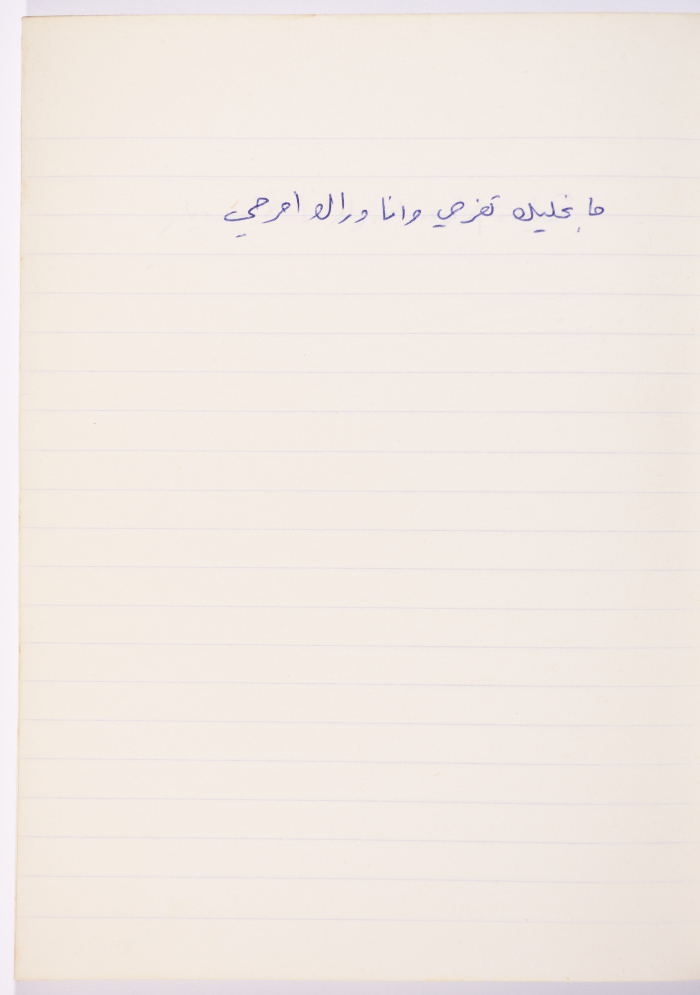 ما بخليك تفرحي وانا وراك امرحي